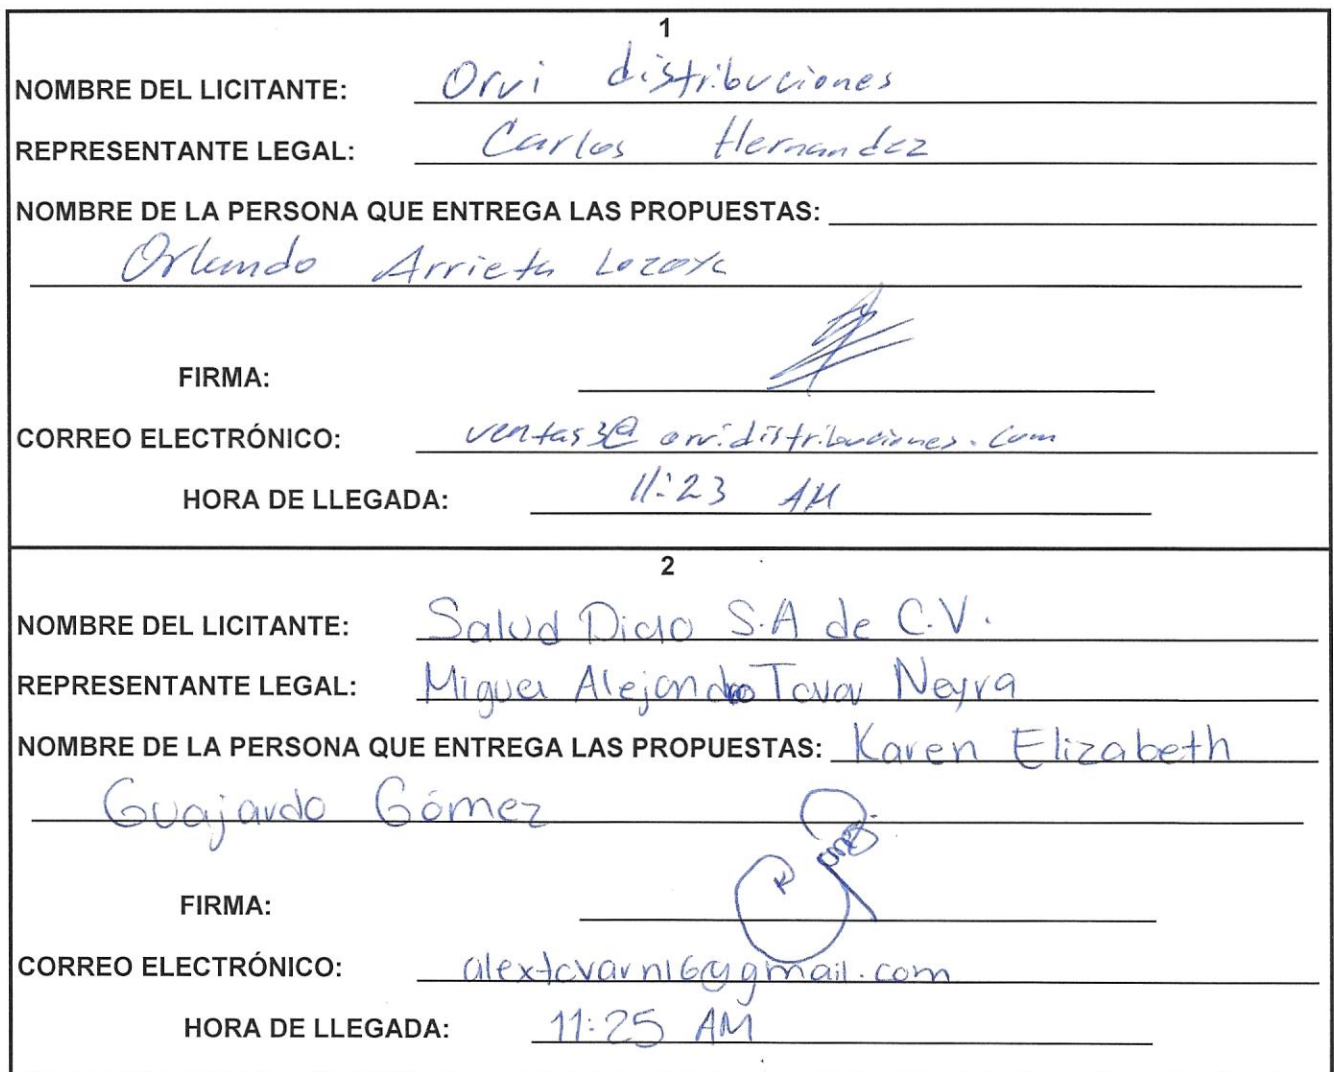 1
NOMBRE DEL LICITANTE: Orvi distribuciones
REPRESENTANTE LEGAL: Carlos Hernandez
NOMBRE DE LA PERSONA QUE ENTREGA LAS PROPUESTAS:
Orlando Arrieta Lozoya
FIRMA:
CORREO ELECTRÓNICO: ventas3@orvidistribuciones.com
HORA DE LLEGADA: 11:23 AM
2
NOMBRE DEL LICITANTE: Salud Dicio S.A de C.V.
REPRESENTANTE LEGAL: Miguel Alejandro Tovar Neyra
NOMBRE DE LA PERSONA QUE ENTREGA LAS PROPUESTAS: Karen Elizabeth
Guajardo Gómez
FIRMA:
CORREO ELECTRÓNICO: alextovarn16@gmail.com
HORA DE LLEGADA: 11:25 AM